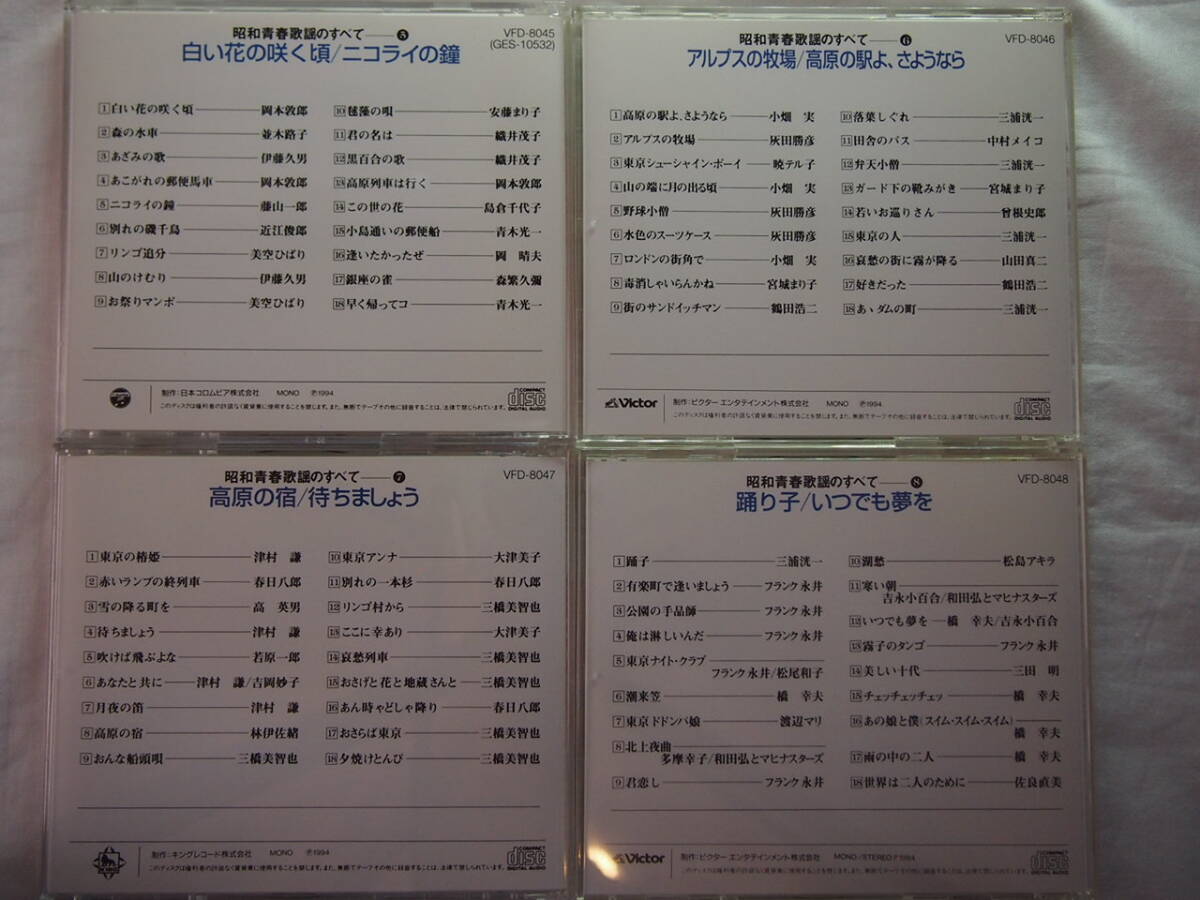 昭和青春歌謡のすべて——5
VFD-8045
(GES-10532)
白い花の咲く頃/ニコライの鐘
1 白い花の咲く頃 岡本敦郎
2 森の水車 並木路子
3 あざみの歌 伊藤久男
4 あこがれの郵便馬車 岡本敦郎
5 ニコライの鐘 藤山一郎
6 別れの磯千鳥 近江俊郎
7 リンゴ追分 美空ひばり
8 山のけむり 伊藤久男
9 お祭りマンボ 美空ひばり
10 毬藻の唄 安藤まり子
11 君の名は 織井茂子
12 黒百合の歌 織井茂子
13 高原列車は行く 岡本敦郎
14 この世の花 島倉千代子
15 小島通いの郵便船 青木光一
16 逢いたかったぜ 岡 晴夫
17 銀座の雀 森繁久彌
18 早く帰ってコ 青木光一
制作:日本コロムビア株式会社 MONO ℗1994
このディスクは権利者の許諾なく賃貸業に使用することを禁じます。また、無断でテープその他に録音することは、法律で禁じられています。
COMPACT
disc
DIGITAL AUDIO
昭和青春歌謡のすべて——6
VFD-8046
アルプスの牧場/高原の駅よ、さようなら
1 高原の駅よ、さようなら 小畑 実
2 アルプスの牧場 灰田勝彦
3 東京シューシャイン・ボーイ 暁テル子
4 山の端に月の出る頃 小畑 実
5 野球小僧 灰田勝彦
6 水色のスーツケース 灰田勝彦
7 ロンドンの街角で 小畑 実
8 毒消しゃいらんかね 宮城まり子
9 街のサンドイッチマン 鶴田浩二
10 落葉しぐれ 三浦洸一
11 田舎のバス 中村メイコ
12 弁天小僧 三浦洸一
13 ガード下の靴みがき 宮城まり子
14 若いお巡りさん 曾根史郎
15 東京の人 三浦洸一
16 哀愁の街に霧が降る 山田真二
17 好きだった 鶴田浩二
18 あゝダムの町 三浦洸一
Victor
制作:ビクター エンタテインメント株式会社 MONO ℗1994
このディスクは権利者の許諾なく賃貸業に使用することを禁じます。また、無断でテープその他に録音することは、法律で禁じられています。
COMPACT
disc
DIGITAL AUDIO
昭和青春歌謡のすべて——7
VFD-8047
高原の宿/待ちましょう
1 東京の椿姫 津村 謙
2 赤いランプの終列車 春日八郎
3 雪の降る町を 高 英男
4 待ちましょう 津村 謙
5 吹けば飛ぶよな 若原一郎
6 あなたと共に 津村 謙/吉岡妙子
7 月夜の笛 津村 謙
8 高原の宿 林伊佐緒
9 おんな船頭唄 三橋美智也
10 東京アンナ 大津美子
11 別れの一本杉 春日八郎
12 リンゴ村から 三橋美智也
13 ここに幸あり 大津美子
14 哀愁列車 三橋美智也
15 おさげと花と地蔵さんと 三橋美智也
16 あん時ゃどしゃ降り 春日八郎
17 おさらば東京 三橋美智也
18 夕焼けとんび 三橋美智也
制作:キングレコード株式会社 MONO ℗1994
このディスクは権利者の許諾なく賃貸業に使用することを禁じます。また、無断でテープその他に録音することは、法律で禁じられています。
COMPACT
disc
DIGITAL AUDIO
昭和青春歌謡のすべて——8
VFD-8048
踊り子/いつでも夢を
1 踊子 三浦洸一
2 有楽町で逢いましょう フランク永井
3 公園の手品師 フランク永井
4 俺は淋しいんだ フランク永井
5 東京ナイト・クラブ
フランク永井/松尾和子
6 潮来笠 橋 幸夫
7 東京ドドンパ娘 渡辺マリ
8 北上夜曲
多摩幸子/和田弘とマヒナスターズ
9 君恋し フランク永井
10 湖愁 松島アキラ
11 寒い朝
吉永小百合/和田弘とマヒナスターズ
12 いつでも夢を 橋 幸夫/吉永小百合
13 霧子のタンゴ フランク永井
14 美しい十代 三田 明
15 チェッチェッチェッ 橋 幸夫
16 あの娘と僕(スイム・スイム・スイム)
橋 幸夫
17 雨の中の二人 橋 幸夫
18 世界は二人のために 佐良直美
Victor
制作:ビクター エンタテインメント株式会社 MONO/STEREO ℗1994
このディスクは権利者の許諾なく賃貸業に使用することを禁じます。また、無断でテープその他に録音することは、法律で禁じられています。
COMPACT
disc
DIGITAL AUDIO